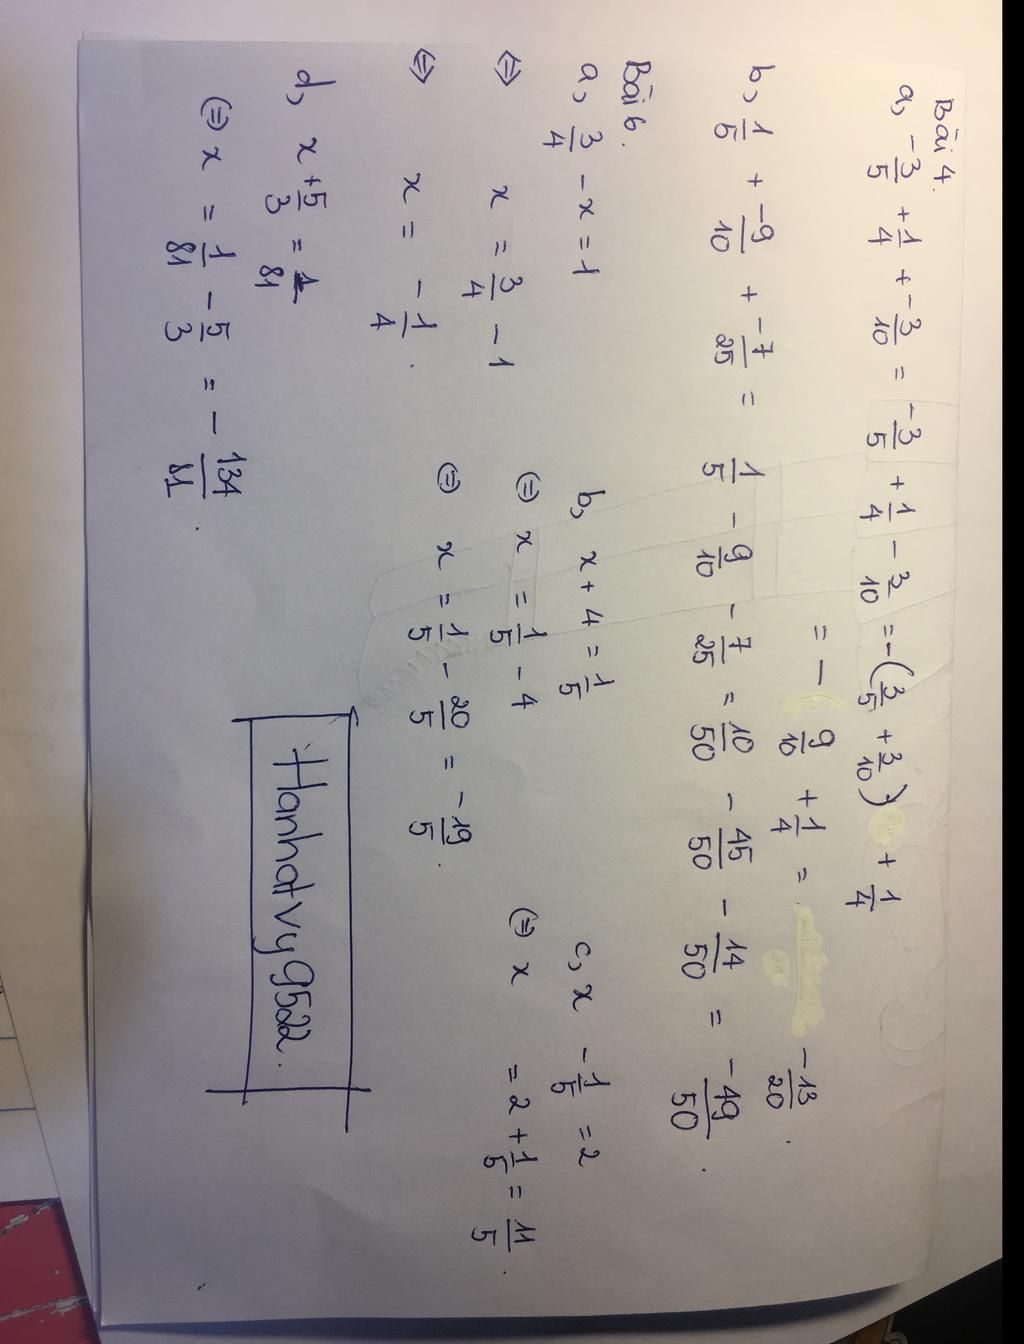 Bài 4.
a, -3/5 + 1/4 + -3/10 = -3/5 + 1/4 - 3/10 = -(3/5 + 3/10) + 1/4
= - 9/10 + 1/4 = -13/20.
b, 1/5 + -9/10 + -7/25 = 1/5 - 9/10 - 7/25 = 10/50 - 45/50 - 14/50 = -49/50.
Bài 6.
a, 3/4 - x = 1
⇔ x = 3/4 - 1
⇔ x = -1/4.
b, x + 4 = 1/5
⇔ x = 1/5 - 4
⇔ x = 1/5 - 20/5 = -19/5.
c, x - 1/5 = 2
⇔ x = 2 + 1/5 = 11/5.
d, x + 5/3 = 1/81
⇔ x = 1/81 - 5/3 = -134/81.
Hanhatvy9522.